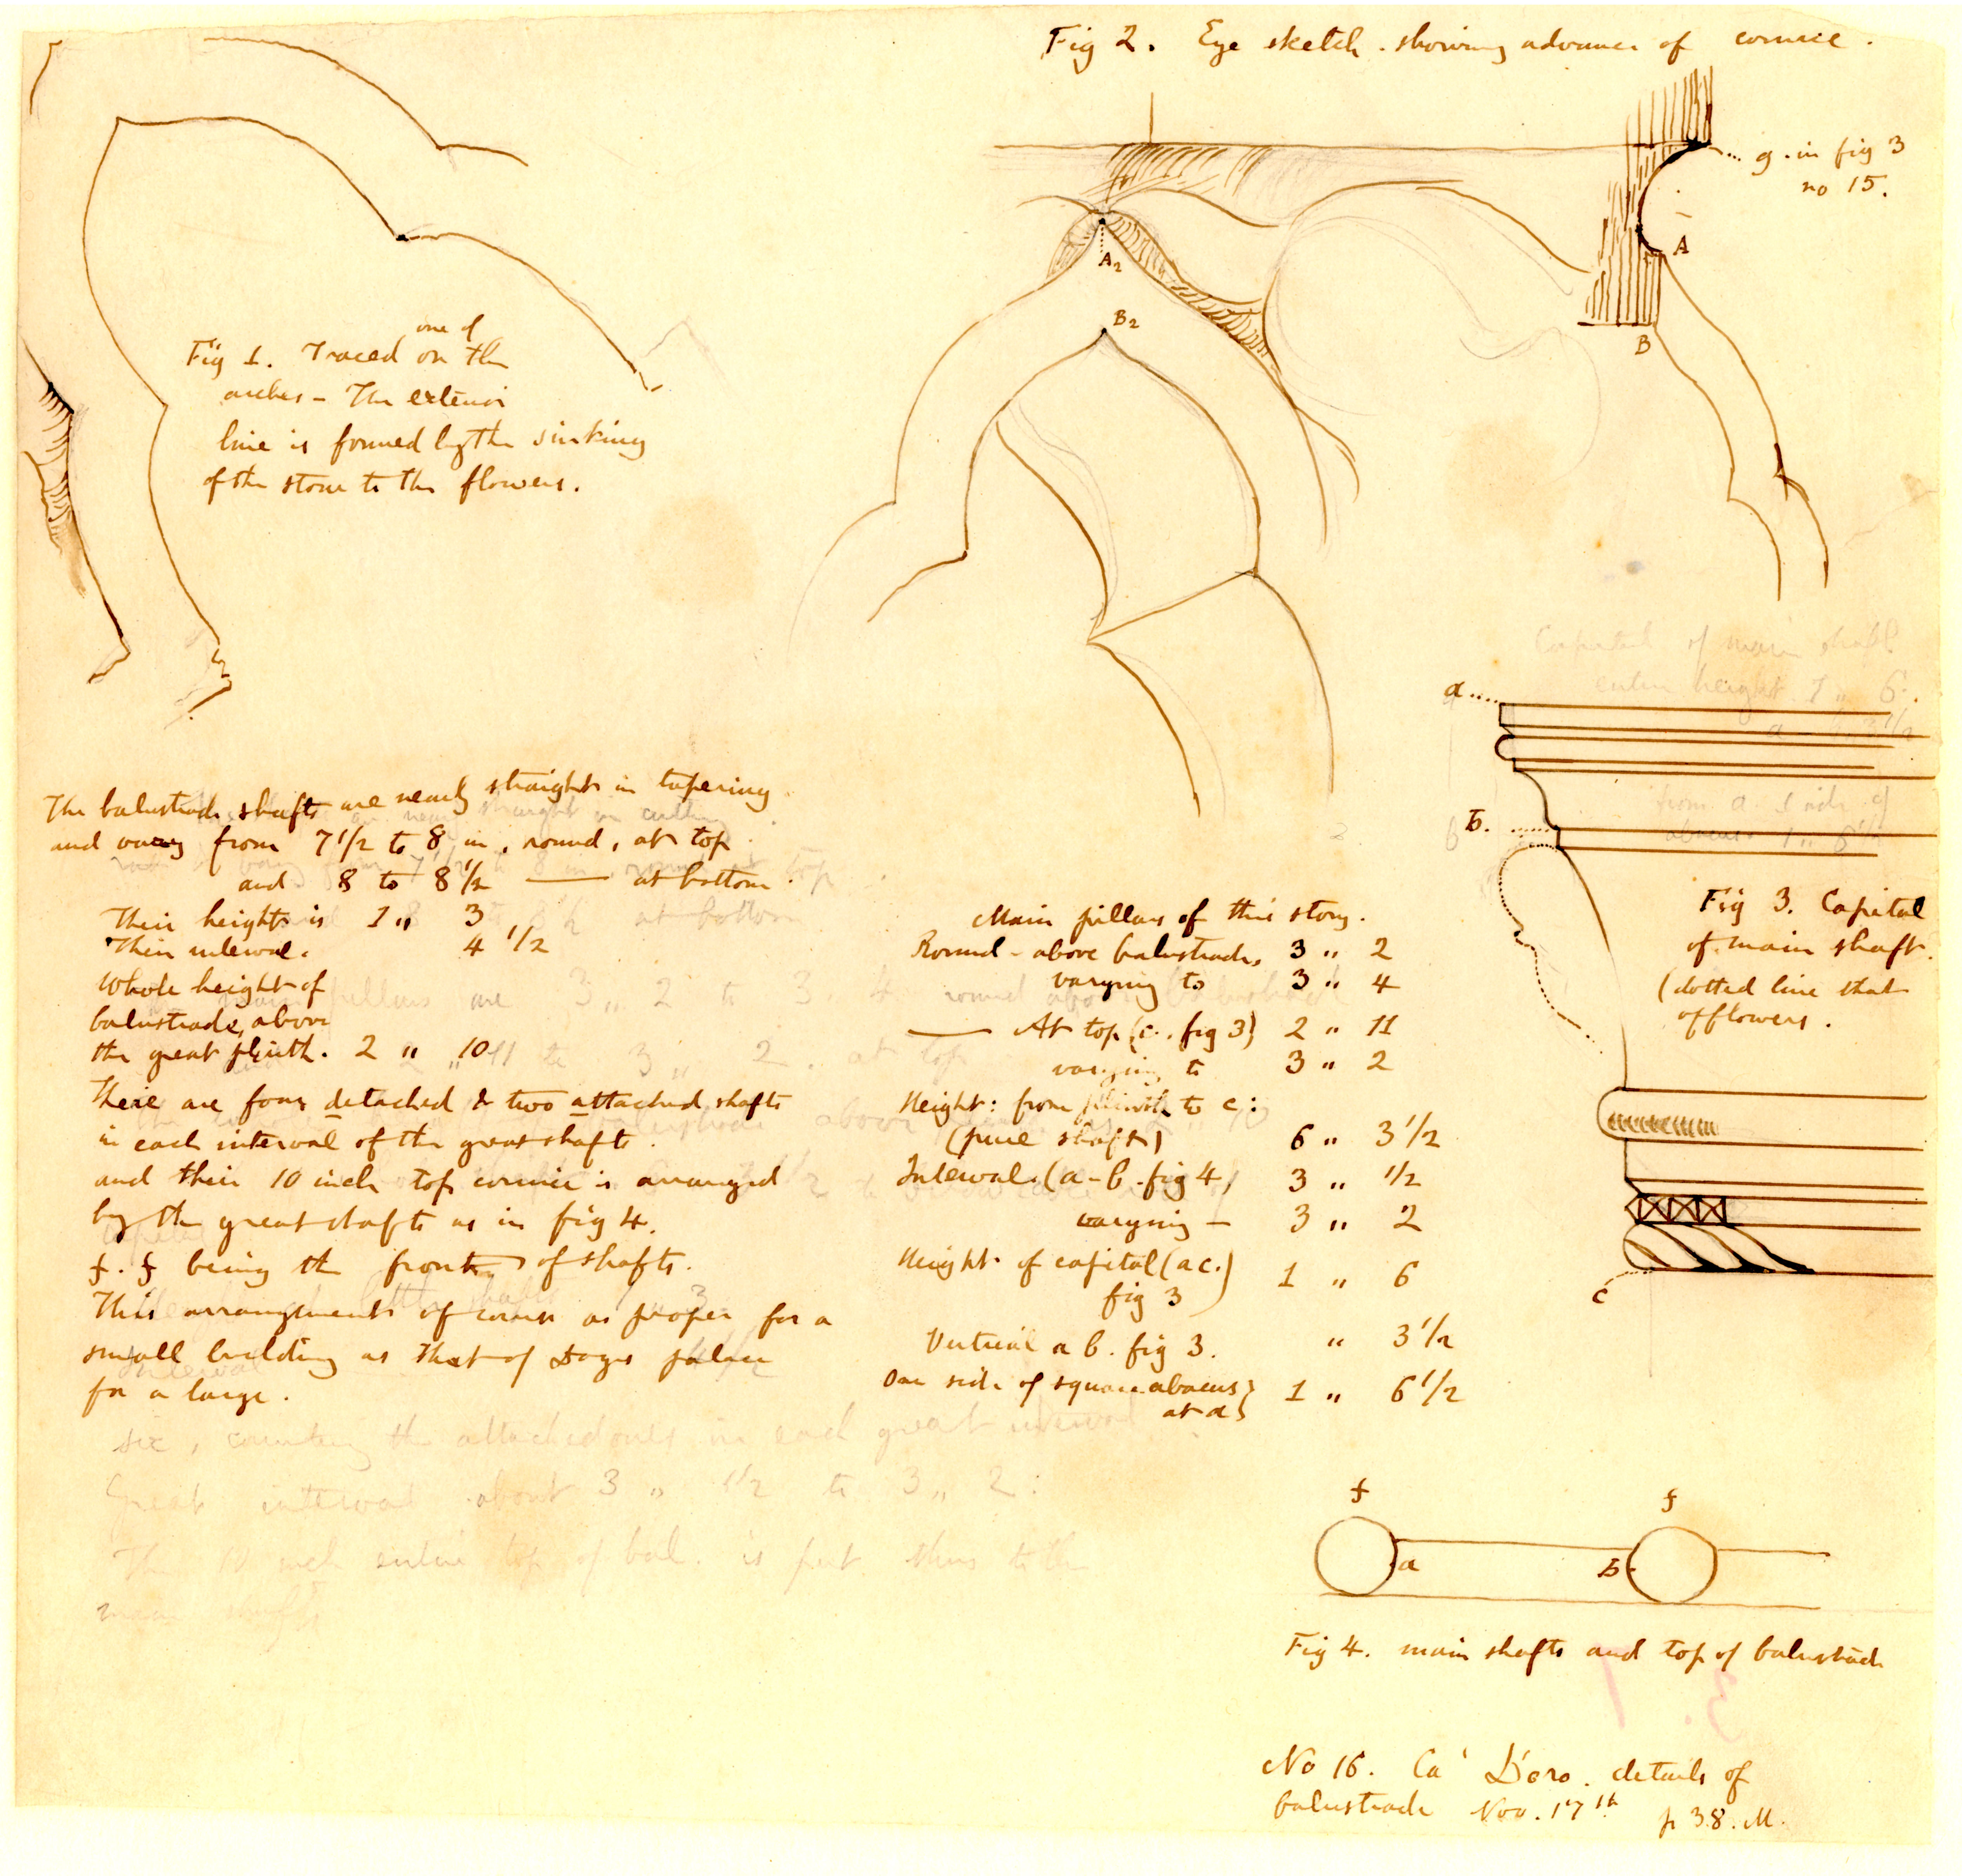 Fig 2. Eye sketch. showing advance of cornice.
g. in fig 3
no 15.
A
A2
B2
B
one of
Fig 1. Traced on the
arches – The exterior
line is formed by the sinking
of the stone to the flowers.
Capital of main shaft
entire height 1 „ 6.
a - b 3 1/2
from a. side of
abacus 1 „ 6 1/2
a
b.
Fig 3. Capital
of main shaft.
(dotted line that
of flowers.
c
The balustrade shafts are nearly straight in tapering
and vary from 7 1/2 to 8 in, round, at top.
and 8 to 8 1/2 —— at bottom.
Their height is 1 „ 3
Their interval. 4 1/2
Whole height of
balustrade, above
the great plinth. 2 „ 10
There are four detached & two attached shafts
in each interval of the great shafts.
and their 10 inch top cornice is arranged
by the great shafts as in fig 4.
f. f being the fronts of shafts.
This arrangement of course as proper for a
small building as that of Doges palace
for a large.
six, counting the attached ones in each great interval
Great interval about 3 „ 1/2 to 3 „ 2:
The 10 inch entire top of bal. is put thus to the
main shafts
Main pillars of this story.
Round - above balustrade, 3 „ 2
varying to 3 „ 4
—— At top (c. fig 3) 2 „ 11
varying to 3 „ 2
Height: from plinth to c:
(pure shaft) 6 „ 3 1/2
Interval. (a-b. fig 4, 3 „ 1/2
varying – 3 „ 2
Height of capital (a c.) 1 „ 6
fig 3
Vertical a b. fig 3. „ 3 1/2
One side of square abacus 1 „ 6 1/2
at a
f f
a b
Fig 4. main shafts and top of balustrade
No 16. Ca' D'oro. details of
balustrade Nov. 17th p 38. M.